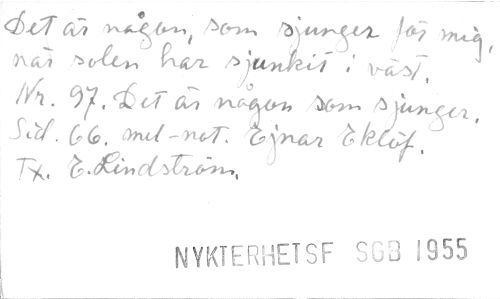 Det är någon, som sjunger för mig,
när solen har sjunkit i väst.
Nr. 97. Det är någon som sjunger.
Sid. 66. mel-not. Ejnar Eklöf.
Tx. E. Lindström.
NYKTERHETSF SGB 1955